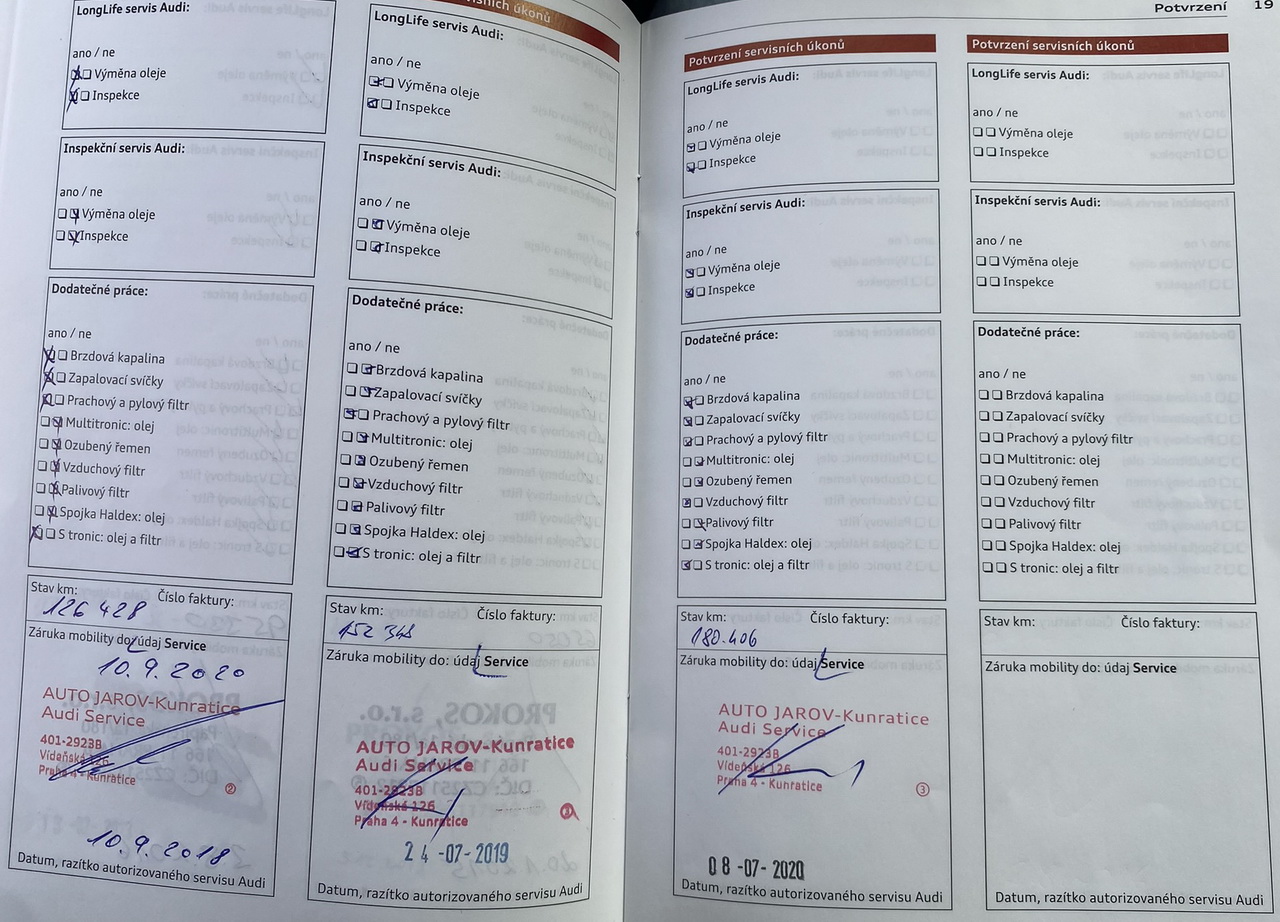 LongLife servis Audi:
ano / ne
Výměna oleje
Inspekce
Inspekční servis Audi:
ano / ne
Výměna oleje
Inspekce
Dodatečné práce:
ano / ne
Brzdová kapalina
Zapalovací svíčky
Prachový a pylový filtr
Multitronic: olej
Ozubený řemen
Vzduchový filtr
Palivový filtr
Spojka Haldex: olej
S tronic: olej a filtr
Stav km: Číslo faktury:
126 428
Záruka mobility do: údaj Service
10.9.2020
AUTO JAROV-Kunratice
Audi Service
401-2923B
Vídeňská 126
Praha 4 - Kunratice
2
10.9.2018
Datum, razítko autorizovaného servisu Audi
servisních úkonů
LongLife servis Audi:
ano / ne
Výměna oleje
Inspekce
Inspekční servis Audi:
ano / ne
Výměna oleje
Inspekce
Dodatečné práce:
ano / ne
Brzdová kapalina
Zapalovací svíčky
Prachový a pylový filtr
Multitronic: olej
Ozubený řemen
Vzduchový filtr
Palivový filtr
Spojka Haldex: olej
S tronic: olej a filtr
Stav km: Číslo faktury:
152 348
Záruka mobility do: údaj Service
AUTO JAROV-Kunratice
Audi Service
401-2923B
Vídeňská 126
Praha 4 - Kunratice
24 -07- 2019
Datum, razítko autorizovaného servisu Audi
Potvrzení 19
Potvrzení servisních úkonů
LongLife servis Audi:
ano / ne
Výměna oleje
Inspekce
Inspekční servis Audi:
ano / ne
Výměna oleje
Inspekce
Dodatečné práce:
ano / ne
Brzdová kapalina
Zapalovací svíčky
Prachový a pylový filtr
Multitronic: olej
Ozubený řemen
Vzduchový filtr
Palivový filtr
Spojka Haldex: olej
S tronic: olej a filtr
Stav km: Číslo faktury:
180.406
Záruka mobility do: údaj Service
AUTO JAROV-Kunratice
Audi Service
401-2923B
Vídeňská 126
Praha 4 - Kunratice
3
08 -07- 2020
Datum, razítko autorizovaného servisu Audi
Potvrzení servisních úkonů
LongLife servis Audi:
ano / ne
Výměna oleje
Inspekce
Inspekční servis Audi:
ano / ne
Výměna oleje
Inspekce
Dodatečné práce:
ano / ne
Brzdová kapalina
Zapalovací svíčky
Prachový a pylový filtr
Multitronic: olej
Ozubený řemen
Vzduchový filtr
Palivový filtr
Spojka Haldex: olej
S tronic: olej a filtr
Stav km: Číslo faktury:
Záruka mobility do: údaj Service
Datum, razítko autorizovaného servisu Audi